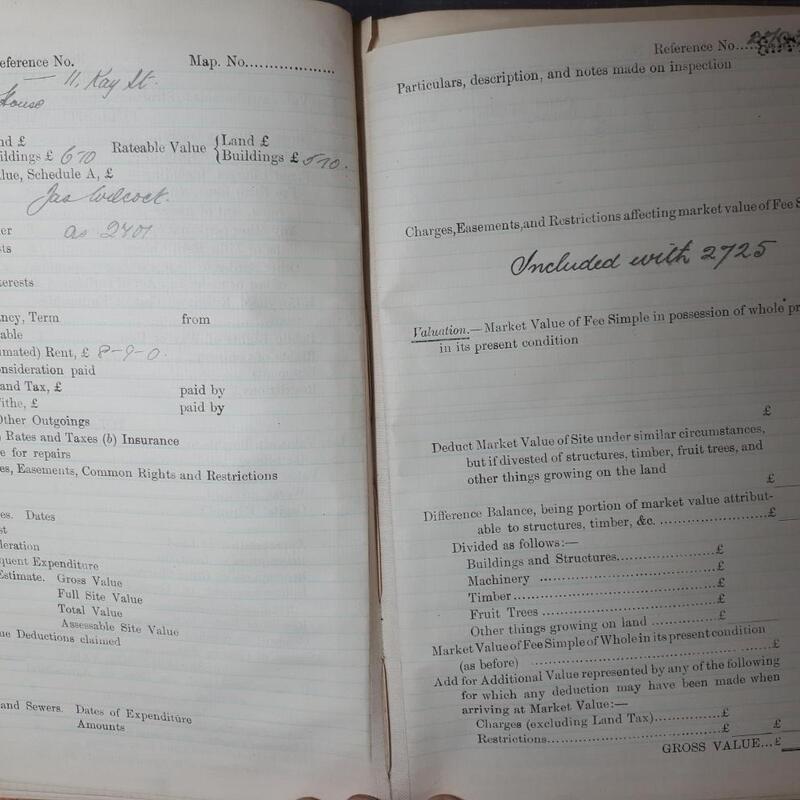 eference No. Map. No..................
— 11. Kay St.
House
nd £
ildings £ 670 Rateable Value {Land £
{Buildings £ 510.
lue, Schedule A, £
Jas Wilcock.
er as 2701
sts
terests
ncy, Term from
able
mated) Rent, £ 8-9-0.
nsideration paid
and Tax, £ paid by
Tithe, £ paid by
Other Outgoings
) Rates and Taxes (b) Insurance
e for repairs
es, Easements, Common Rights and Restrictions
es. Dates
st
deration
quent Expenditure
Estimate. Gross Value
Full Site Value
Total Value
Assessable Site Value
ue Deductions claimed
and Sewers. Dates of Expenditure
Amounts
Reference No....
Particulars, description, and notes made on inspection
Charges, Easements, and Restrictions affecting market value of Fee S
Included with 2725
Valuation.—Market Value of Fee Simple in possession of whole pr
in its present condition
£
Deduct Market Value of Site under similar circumstances,
but if divested of structures, timber, fruit trees, and
other things growing on the land
£
Difference Balance, being portion of market value attribut-
able to structures, timber, &c. ......................£
Divided as follows:—
Buildings and Structures....................£
Machinery ....................................£
Timber.........................................£
Fruit Trees ....................................£
Other things growing on land ..............£
Market Value of Fee Simple of Whole in its present condition
(as before) ..........................................£
Add for Additional Value represented by any of the following
for which any deduction may have been made when
arriving at Market Value:—
Charges (excluding Land Tax)...............£
Restrictions....................................£ £
GROSS VALUE...£